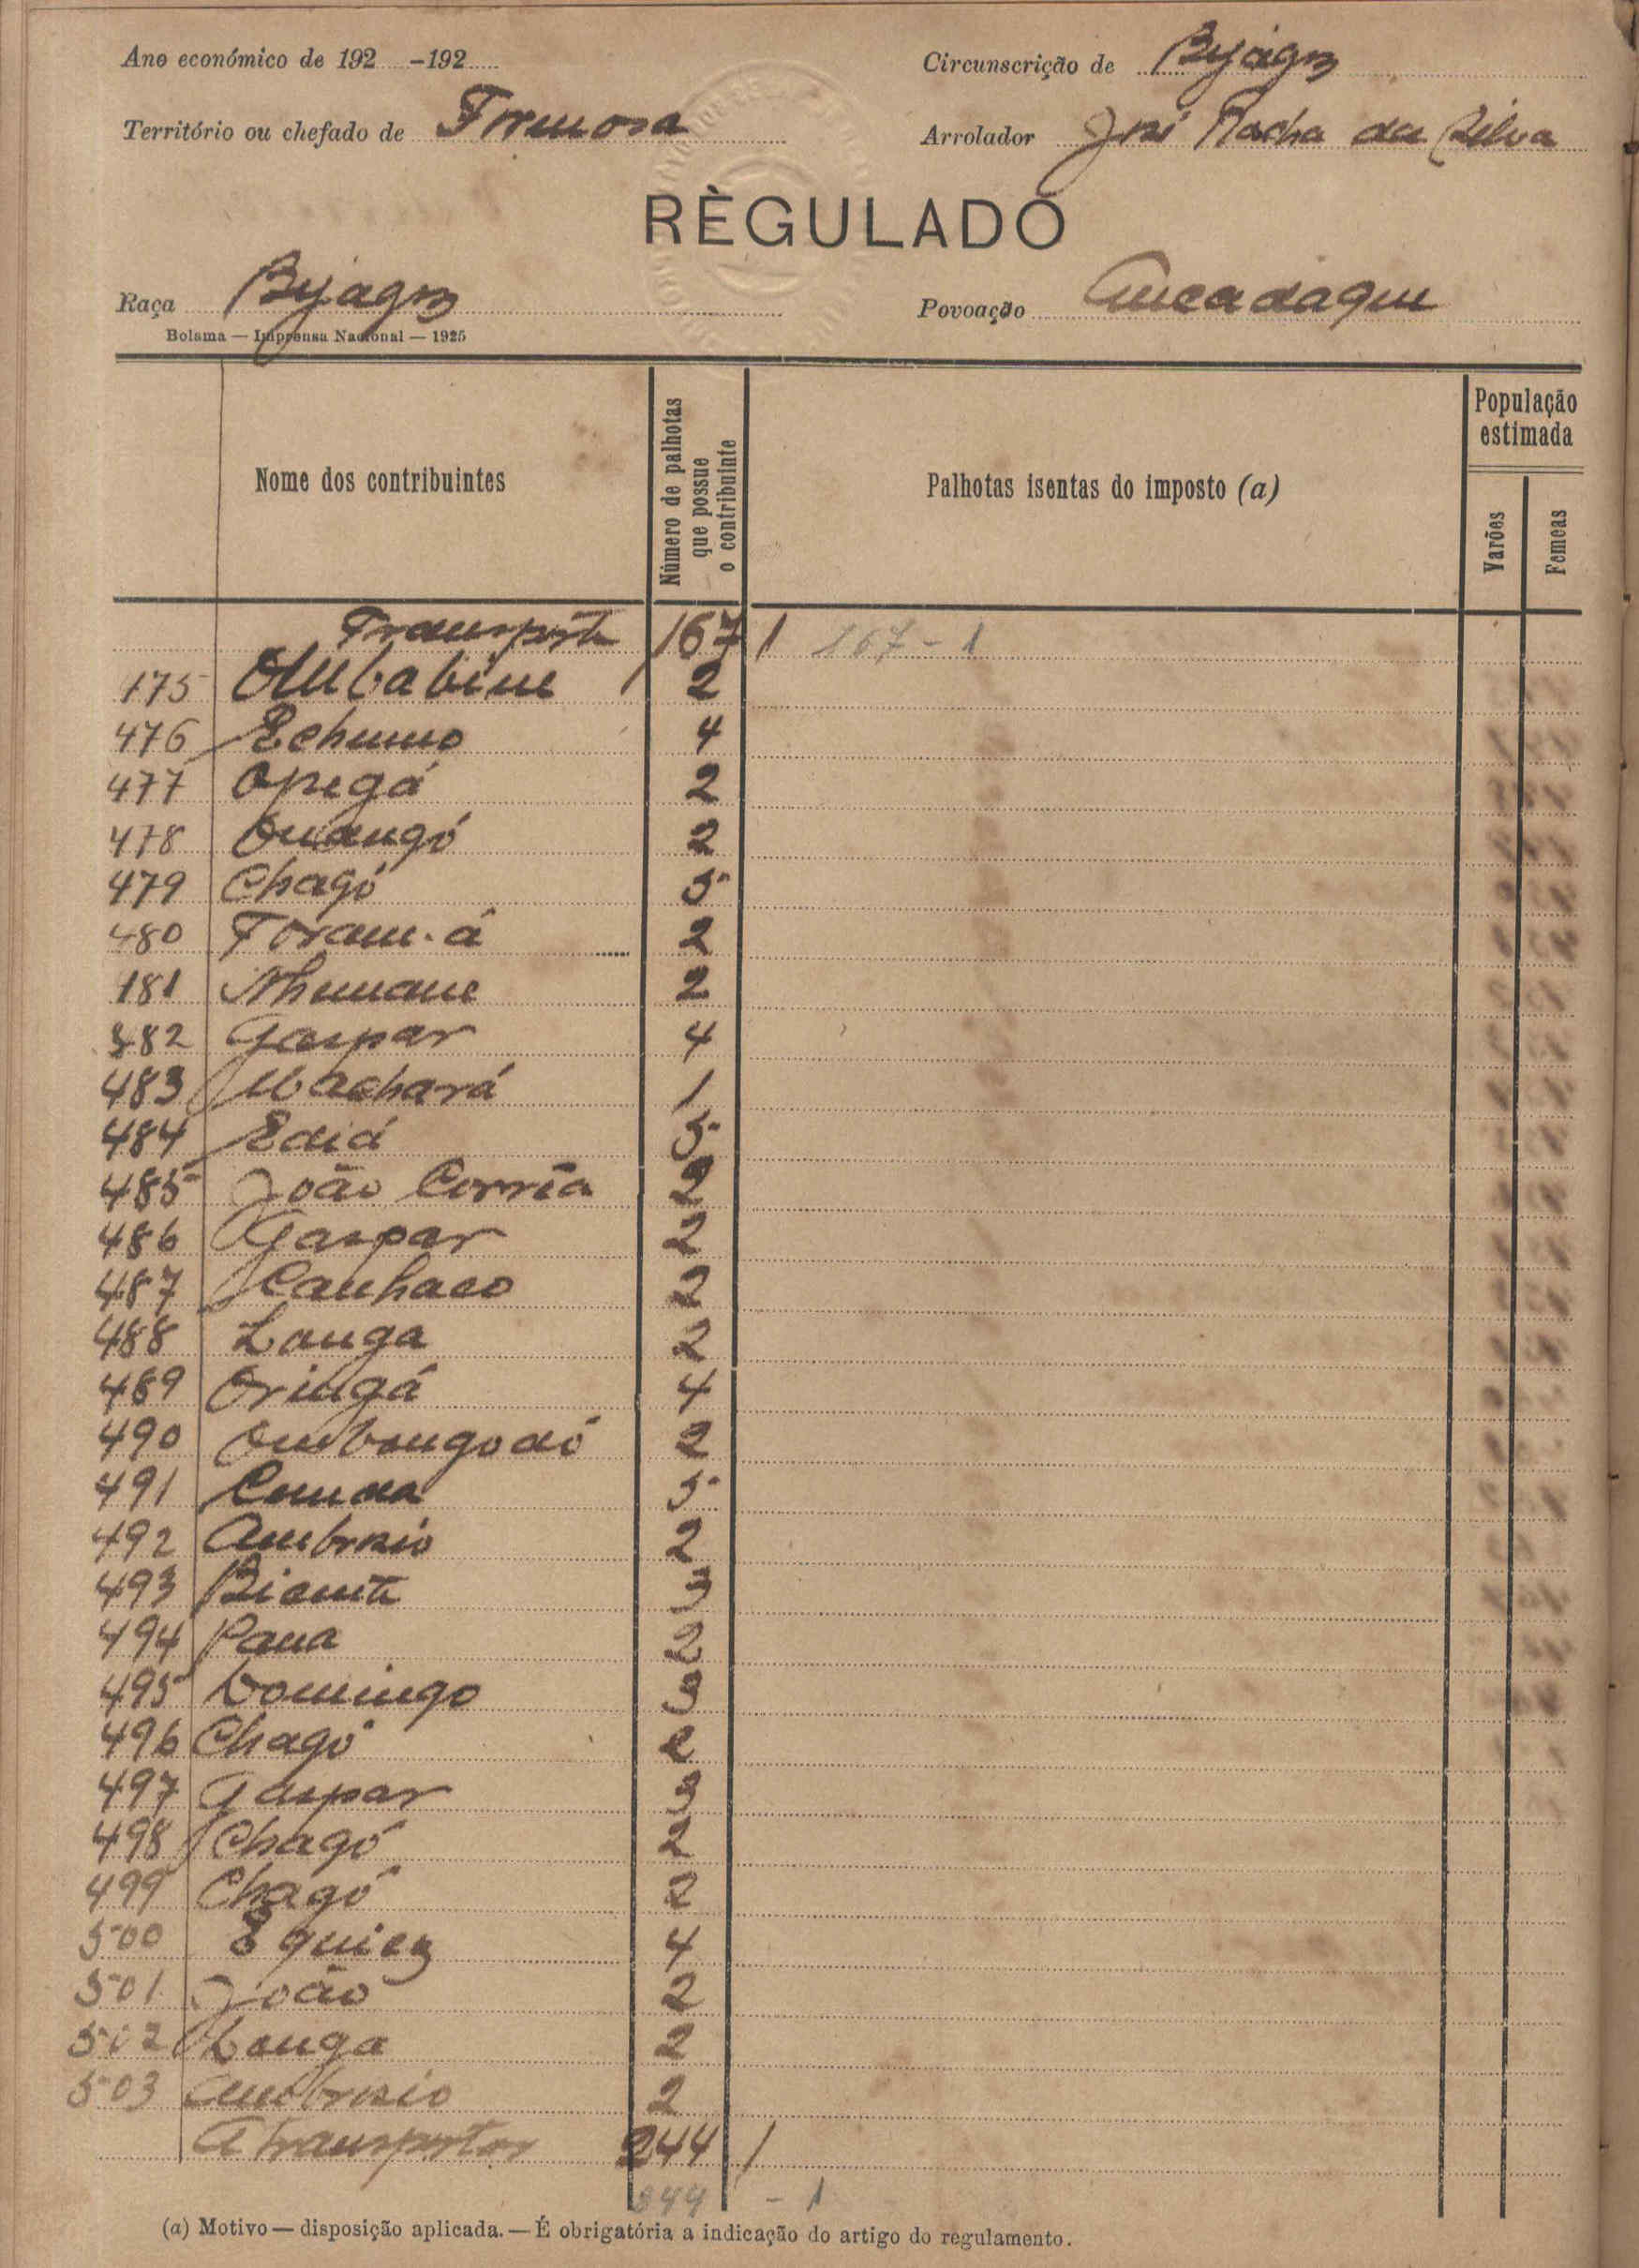 Ano económico de 192 -192
Circunscrição de Byágoz
Território ou chefado de Formosa
Arrolador José Rocha da Silva
RÈGULADO
Raça Byagoz
Povoação Ancadaque
Bolama — Imprensa Nacional — 1925
Nome dos contribuintes
Número de palhotas que possue o contribuinte
Palhotas isentas do imposto (a)
População estimada
Varões
Femeas
Transporte 167 1 167 - 1
175 2
476 Echumo 4
477 Opegá 2
478 Ouangó 2
479 Chagó 5
480 Toram-á 2
181 Nhumane 2
482 Gaspar 4
483 Machará 1
484 Edid 5
485 João Corrêa 2
486 Gaspar 2
487 Canhaco 2
488 Langa 2
489 Oringá 4
490 Ombongodó 2
491 5
492 Ambrosio 2
493 Biante 3
494 Pana 2
495 Domingo 3
496 Chagó 2
497 Gaspar 3
498 Chagó 2
499 Chagó 2
500 4
501 João 2
502 Longa 2
503 Ambrosio 2
A transportar 244 1
244 - 1
(a) Motivo — disposição aplicada. — É obrigatória a indicação do artigo do regulamento.